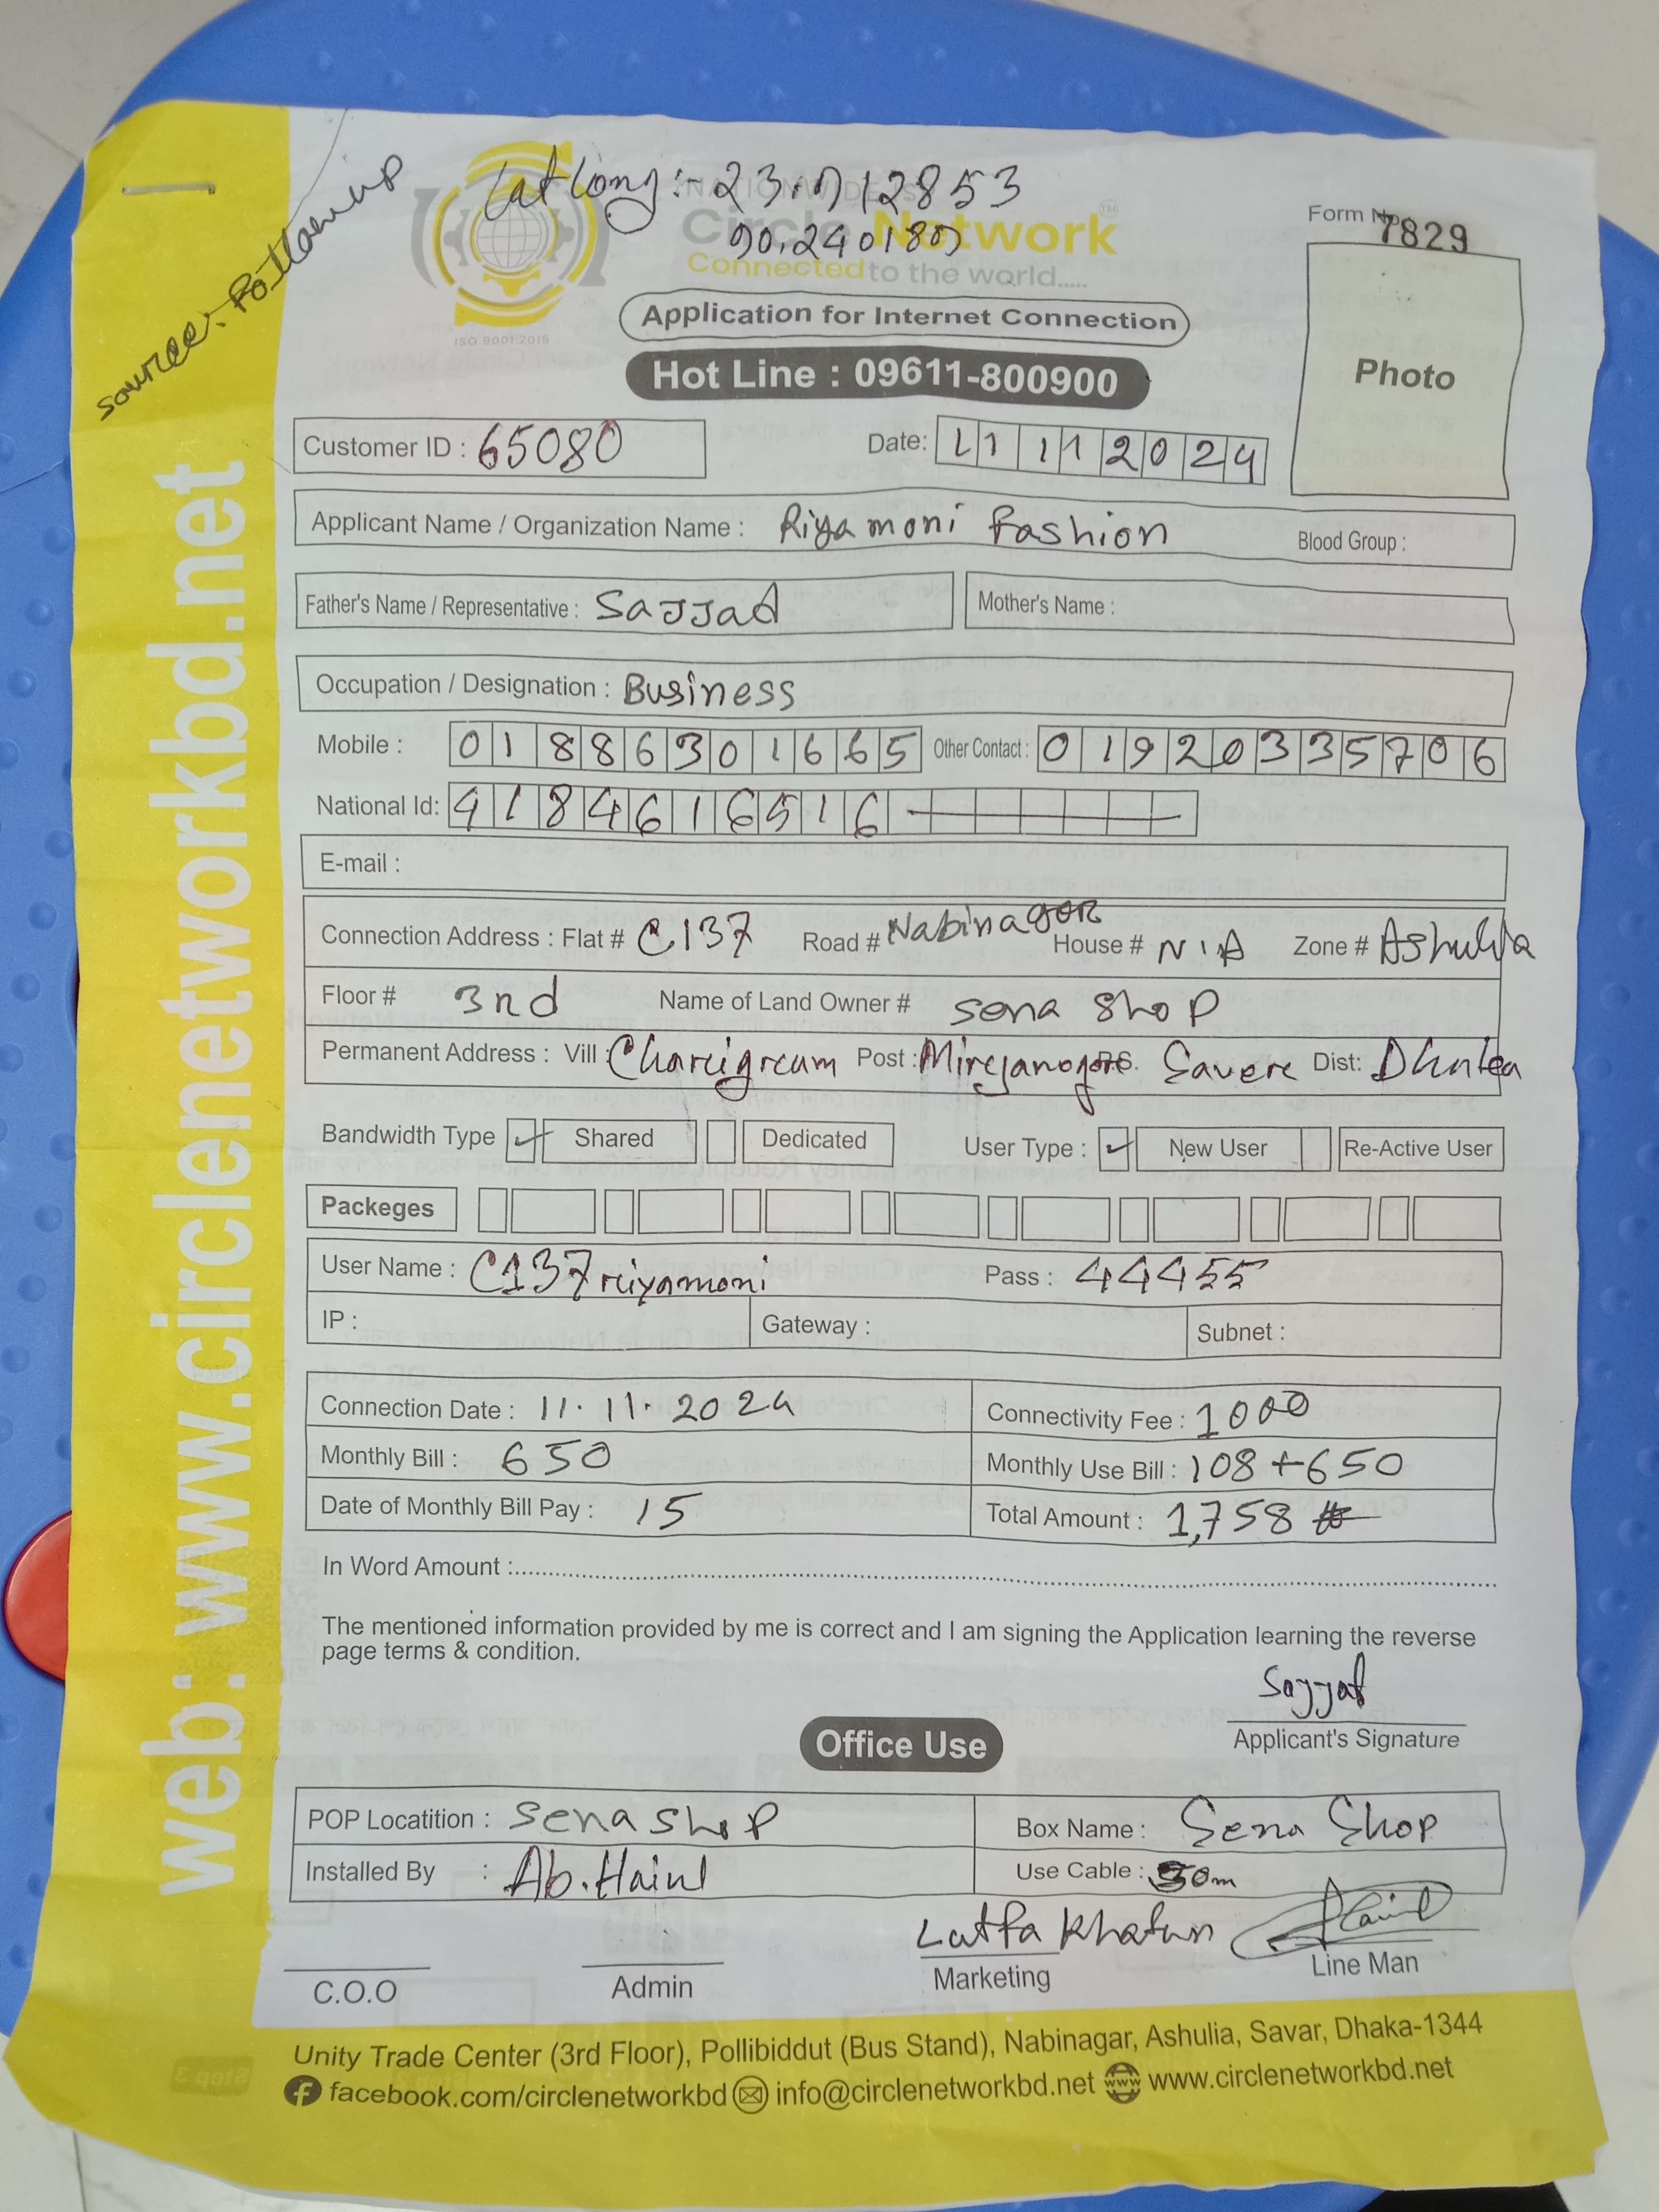 Lat long :- 23.912853
90.240189
NATIONWIDE ISP
Circle Network™
Connected to the world.....
ISO 9001:2015
Form No. 7829
Photo
Application for Internet Connection
Hot Line : 09611-800900
Customer ID : 65080 Date: 11 11 2024
Applicant Name / Organization Name : Riyamoni Fashion Blood Group :
Father's Name / Representative : Sajjad Mother's Name :
Occupation / Designation : Business
Mobile : 01886301665 Other Contact : 01920335706
National Id: 4184616516
E-mail :
Connection Address : Flat # C137 Road # Nabinagor House # N/A Zone # Ashulia
Floor # 3rd Name of Land Owner # Sena Shop
Permanent Address : Vill Charigram Post : Mirjanogor P.S. Saver Dist: Dhaka
Bandwidth Type ✓ Shared Dedicated User Type : ✓ New User Re-Active User
Packeges
User Name : C137riyamoni Pass : 44455
IP : Gateway : Subnet :
Connection Date : 11.11.2024 Connectivity Fee : 1000
Monthly Bill : 650 Monthly Use Bill : 108+650
Date of Monthly Bill Pay : 15 Total Amount : 1,758
In Word Amount :
The mentioned information provided by me is correct and I am signing the Application learning the reverse
page terms & condition.
Sajjad
Applicant's Signature
Office Use
POP Locatition : Sena Shop Box Name : Sena Shop
Installed By : Ab. Use Cable : 50m
Latfa Khatun
C.O.O Admin Marketing Line Man
Unity Trade Center (3rd Floor), Pollibiddut (Bus Stand), Nabinagar, Ashulia, Savar, Dhaka-1344
facebook.com/circlenetworkbd info@circlenetworkbd.net www.circlenetworkbd.net
web: www.circlenetworkbd.net